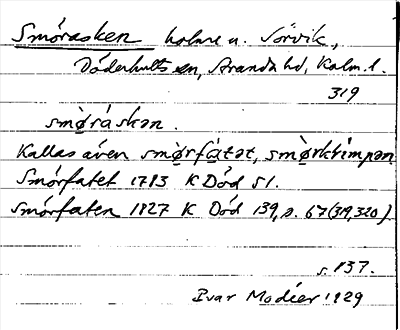 Smörasken holme u. Sörvik,
Döderhults sn, Aranda hd, Kalm. l.
319
smø̀ráskən.
Kallas även smø̀rfátət, smø̀rkrímpən
Smörfatet 1783 K Död 51.
Smörfaten 1827 K Död 139, s. 67 (319, 320).
s. 137.
Ivar Modéer 1929